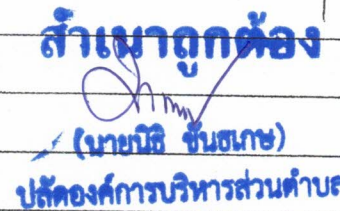 สำเนาถูกต้อง
(นายนิธิ ขันธเกษ)
ปลัดองค์การบริหารส่วนตำบล